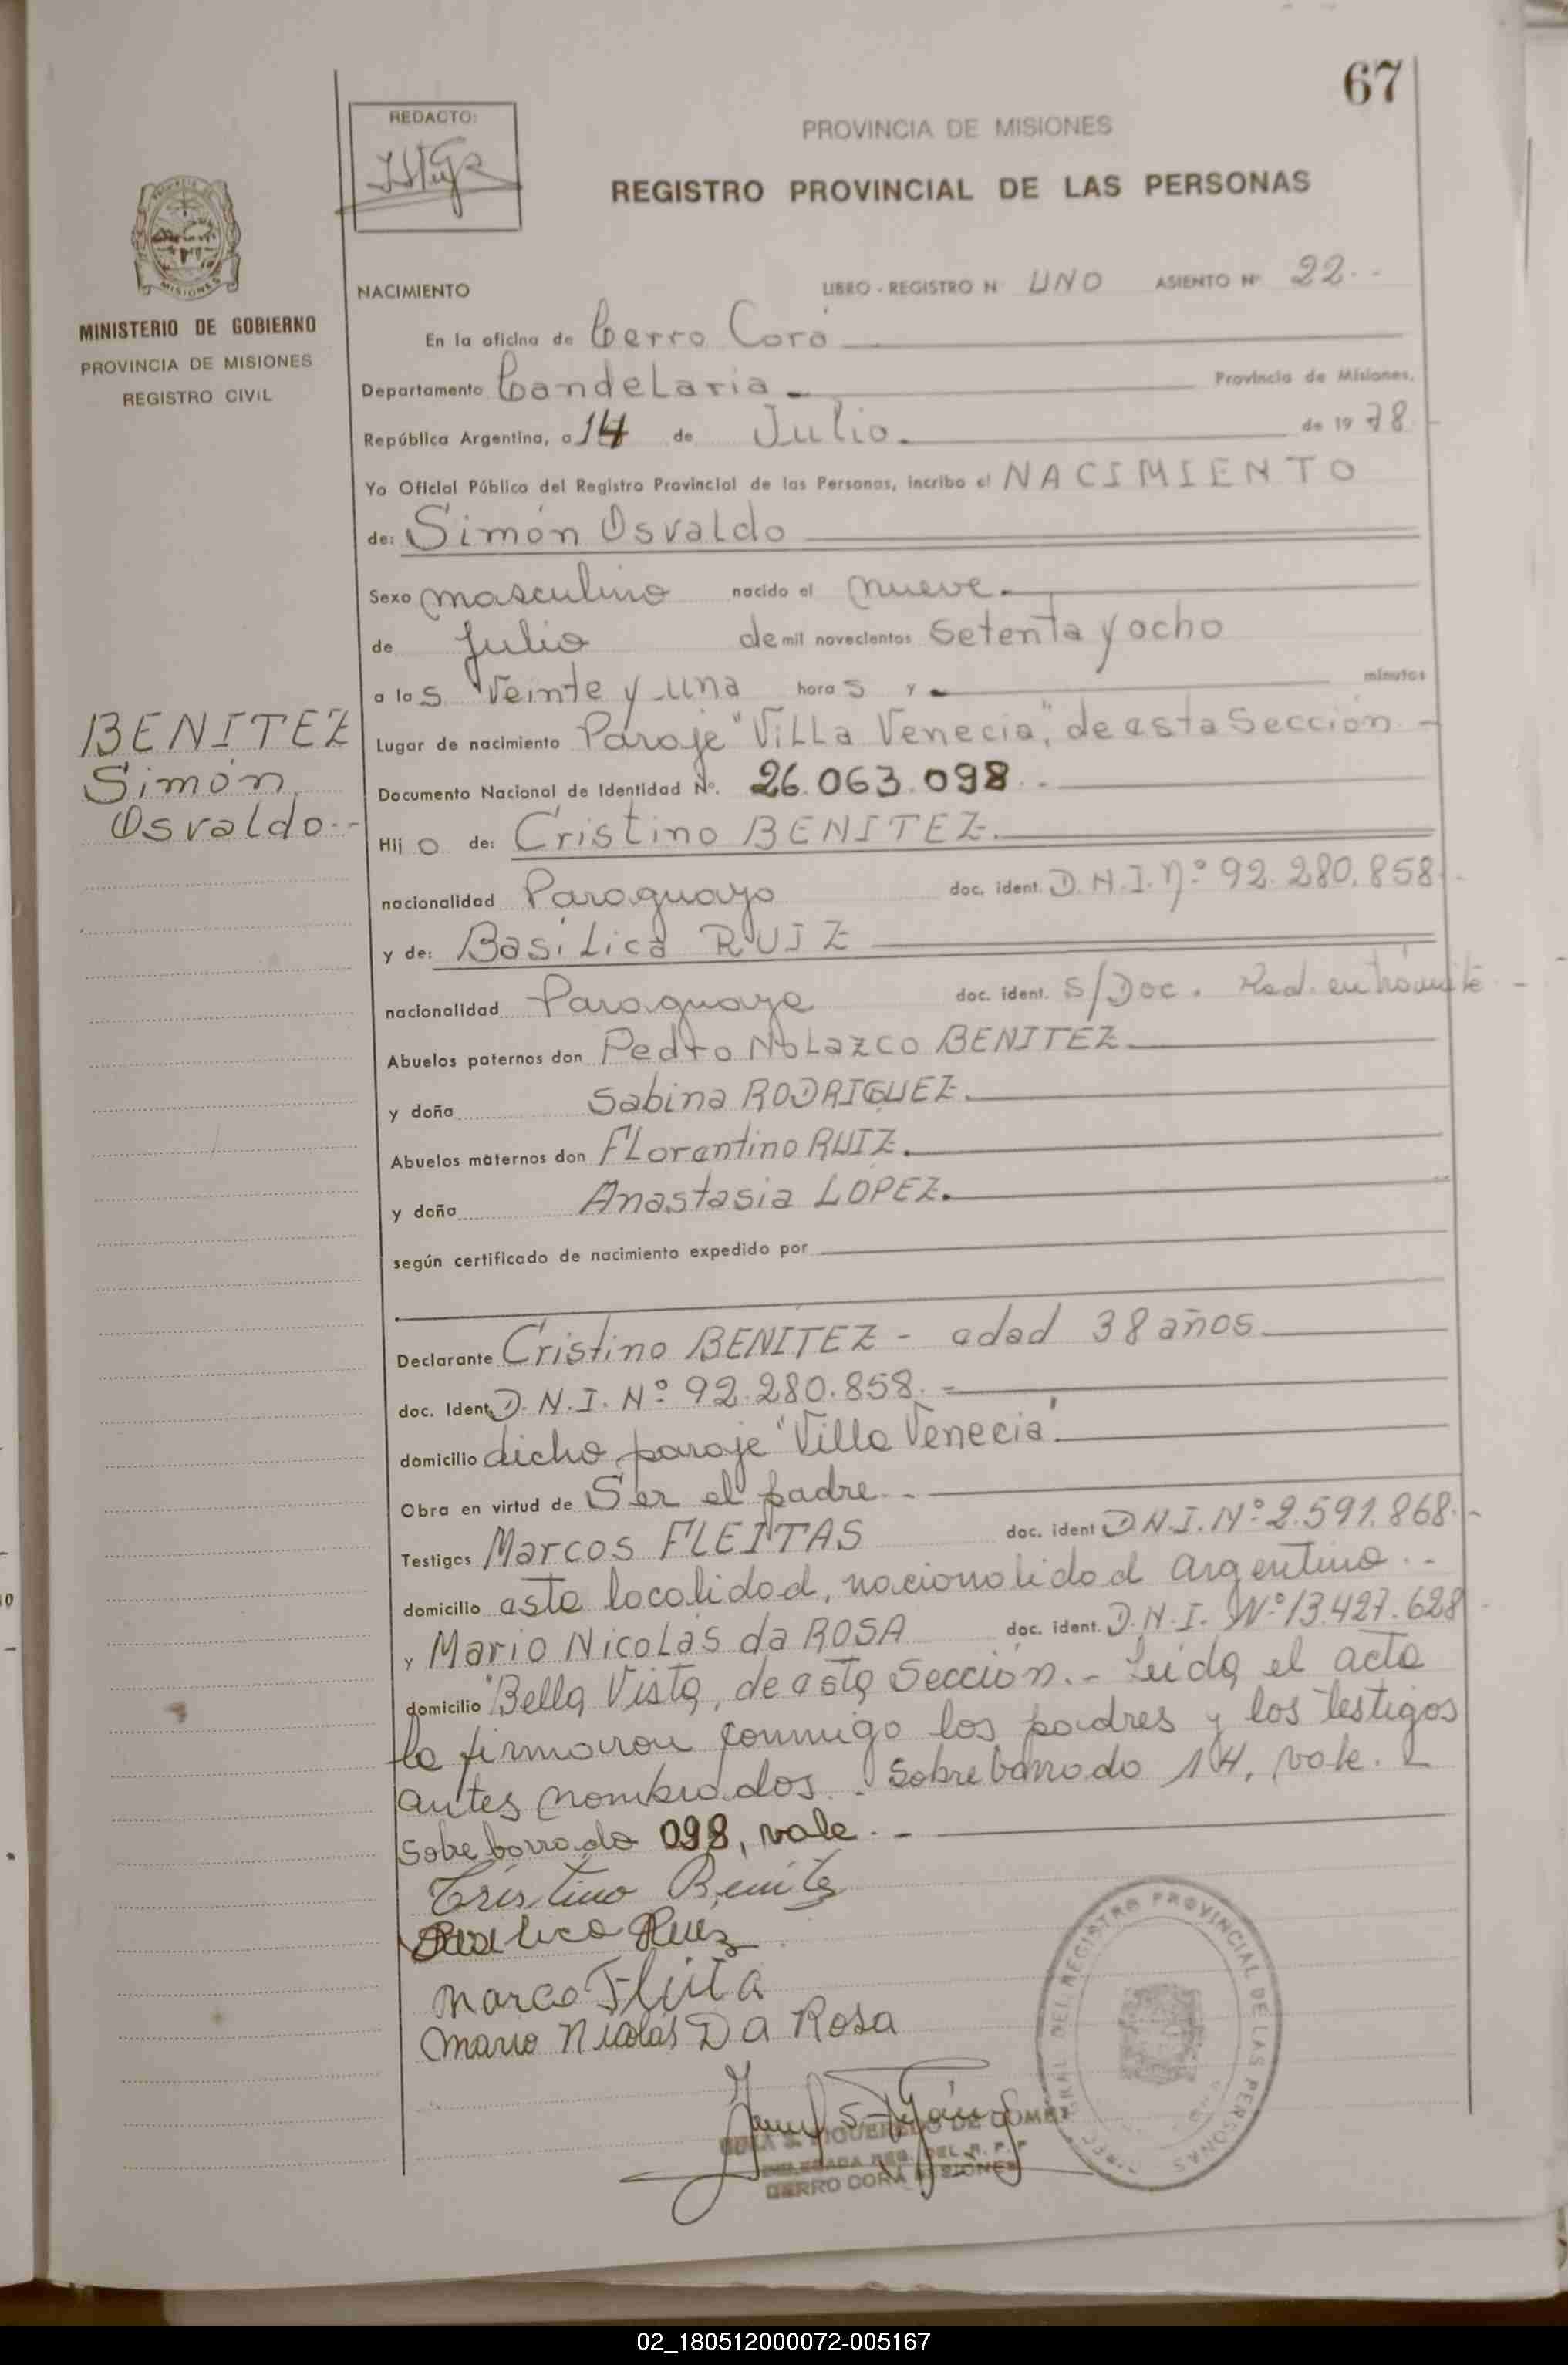 67
REDACTO:
PROVINCIA DE MISIONES
REGISTRO PROVINCIAL DE LAS PERSONAS
MISIONES
MINISTERIO DE GOBIERNO
PROVINCIA DE MISIONES
REGISTRO CIVIL
NACIMIENTO LIBRO - REGISTRO N UNO ASIENTO Nº 22.-
En la oficina de Cerro Corá
Departamento Candelaria Provincia de Misiones,
República Argentina, a 14 de Julio. de 1978.-
Yo Oficial Público del Registro Provincial de las Personas, incribo el NACIMIENTO
de: Simón Osvaldo
Sexo masculino nacido el nueve.
de Julio de mil novecientos Setenta y ocho
a las Veinte y una horas y minutos
BENITEZ
Simón
Osvaldo.-
Lugar de nacimiento Paraje "Villa Venecia", de esta Sección -
Documento Nacional de Identidad Nº. 26.063.098.-
Hijo de: Cristino BENITEZ.
nacionalidad Paraguayo doc. ident. D.N.I. Nº 92.280.858.-
y de: Basílica RUIZ
nacionalidad Paraguaya doc. ident. S/Doc. Rad. en trámite -
Abuelos paternos don Pedro Nolazco BENITEZ
y doña Sabina RODRIGUEZ.
Abuelos maternos don Florentino RUIZ.
y doña Anastasia LOPEZ.
según certificado de nacimiento expedido por
Declarante Cristino BENITEZ - edad 38 años
doc. Ident. D.N.I. Nº 92.280.858.-
domicilio dicho paraje "Villa Venecia".
Obra en virtud de Ser el padre.-
Testigos Marcos FLEITAS doc. ident D.N.I. Nº 2.591.868.-
domicilio esta localidad, nacionalidad argentina.-
y Mario Nicolás da ROSA doc. ident. D.N.I. Nº 13.427.628
domicilio "Bella Vista, de esta Sección.- Leida el acta
la firmaron conmigo los padres y los testigos
antes nombrados.- Sobreborrado 14, vale.-
Sobreborrado 098, vale.-
Cristino Benitez
Basilica Ruiz
Marco Fleita
Mario Nicolás Da Rosa
S. FIGUEREDO DE GOMEZ
DELEGADA REG. DEL R. P. P
CERRO CORA MISIONES
DEL REGISTRO PROVINCIAL DE LAS PERSONAS
02_180512000072-005167